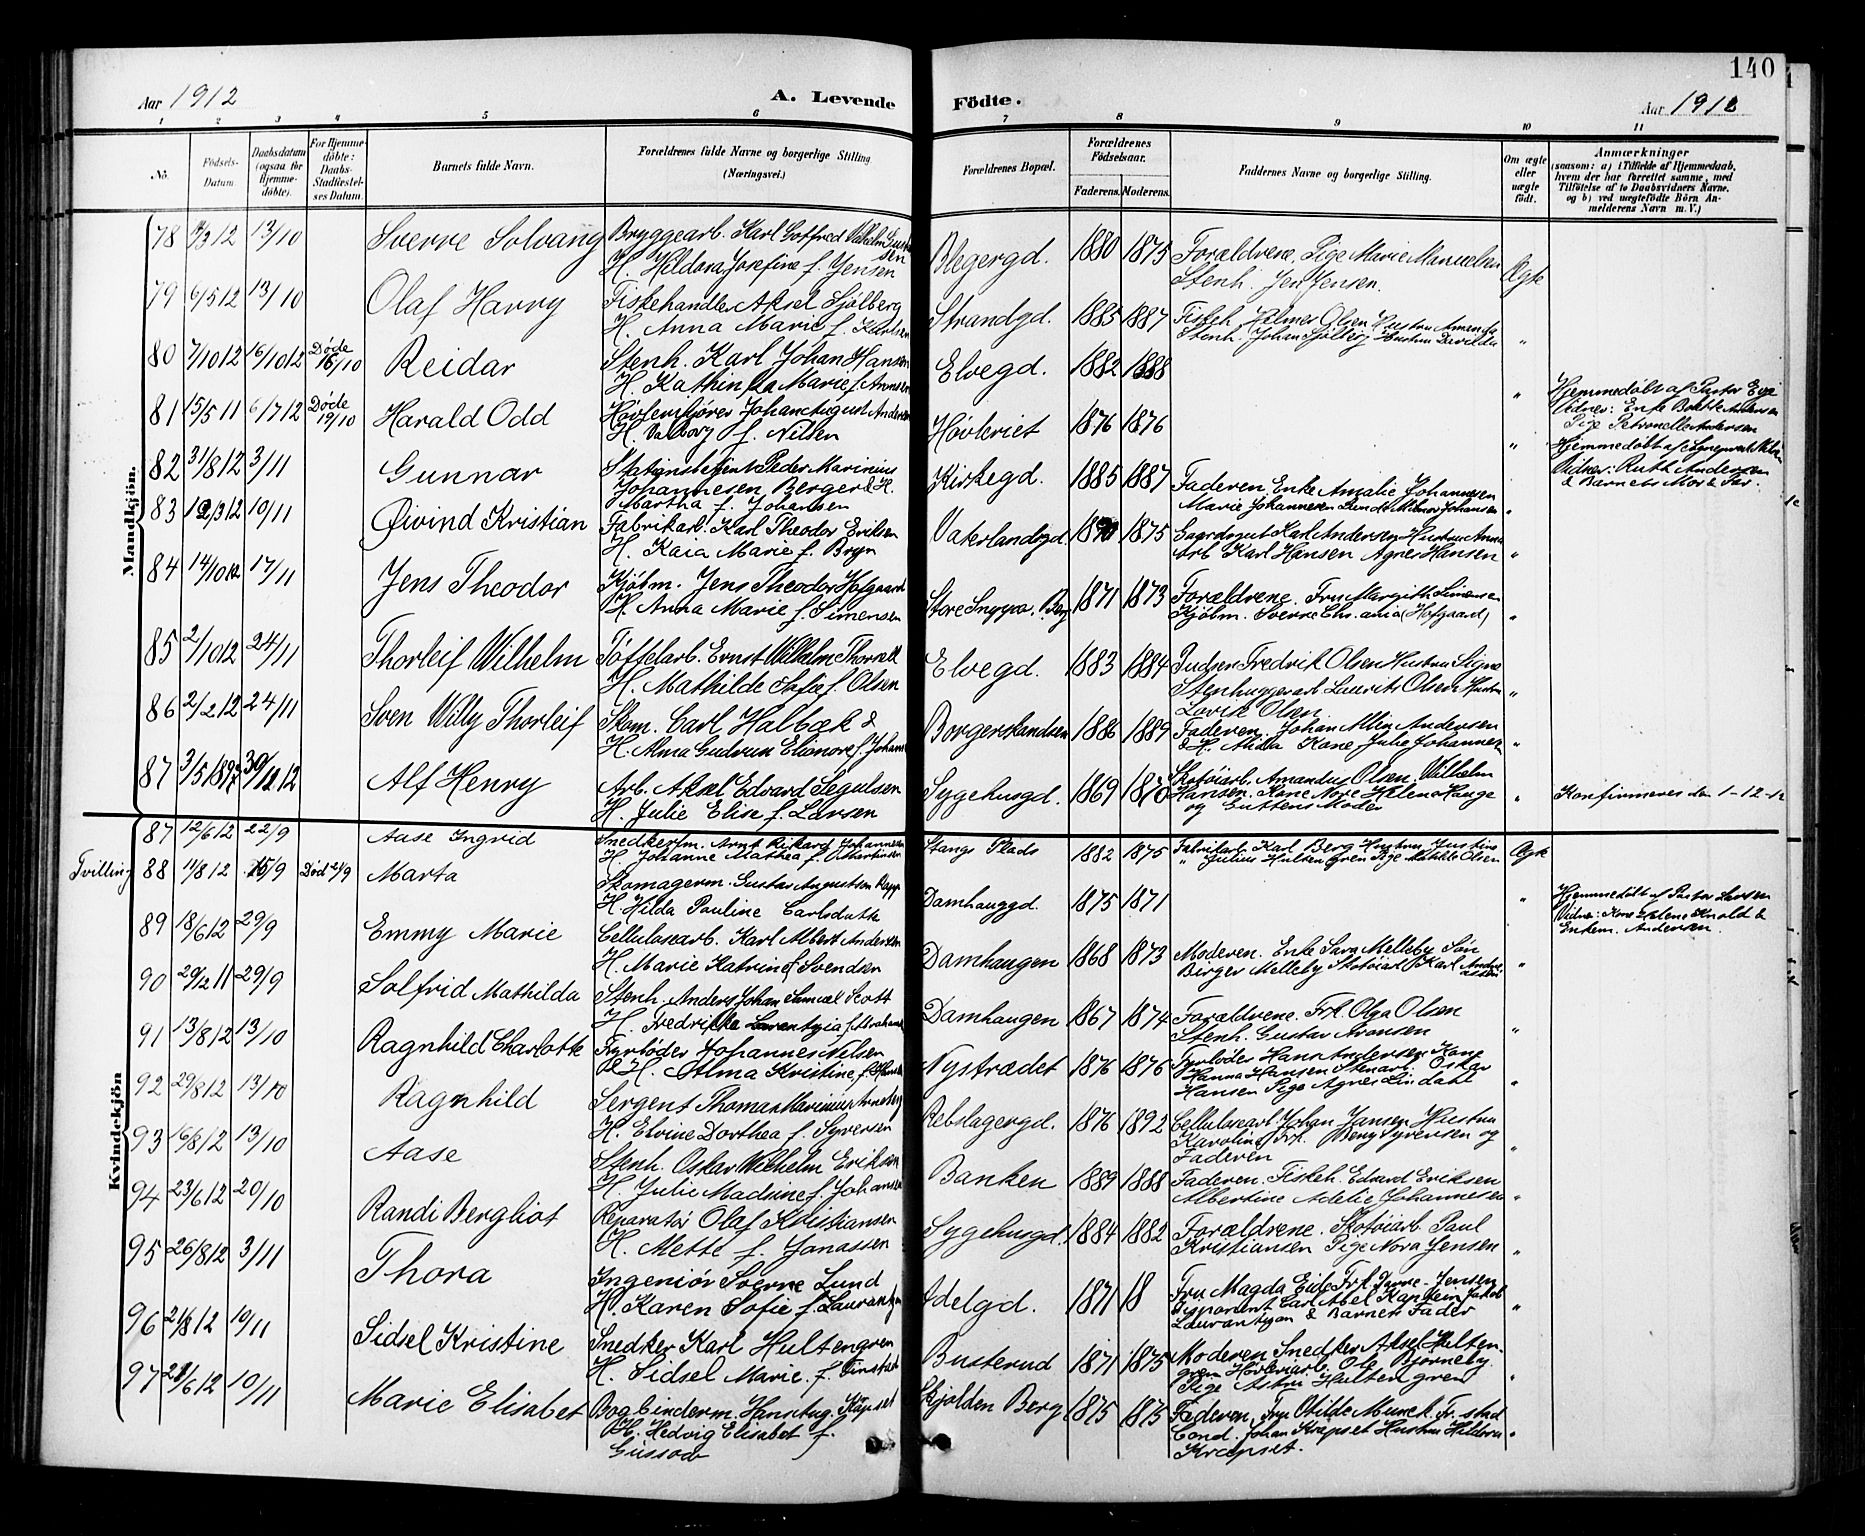 140
Aar 1912 A. Levende Födte. Aar 1912
1 2 3 4 5 6 7 8 9 10 11
No.
Födsels-Datum.
Daabsdatum (ogsaa for Hjemme-döbte).
For Hjemme-döbte: Daabs-Stadfæstel-ses Datum.
Barnets fulde Navn.
Forældrenes fulde Navne og borgerlige Stilling. (Næringsvei.)
Forældrenes Bopæl.
Forældrenes Födselsaar.
Faderens. Moderens.
Faddernes Navne og borgerlige Stilling.
Om ægte eller uægte födt.
Anmærkninger
(saasom: a) i Tilfælde af Hjemmedaab,
hvem der har forrettet samme, med
Tilföielse af to Daabsvidners Navne.
og b) ved uægtefödte Börn An-
melderens Navn m. V.)
Mandkjön.
78 /3 12 13/10 Sverre Solvang Bryggearb. Karl Gotfred Vilhelm
H. Hildora Josefine f. Jensen
Blegergd. 1880 1875 Forældrene, Pige Marie Manuelsen
Stenh. Jens Jensen. Ægte
79 6/5 12 13/10 Olaf Harry Fiskehandler Aksel Sjølberg
H. Anna Marie f. Karlsen
Strandgd. 1885 1887 Fiskeh. Helmer Olsen Hustru Amanda
Stenh. Johan Sjølberg Hustru "
80 7/10 12 16/10 12 Døde 16/10 Reidar Stenh. Karl Johan Hansen
H. Kathinka Marie f. Annsen
Elvegd. 1882 1888 "
81 15/5 11 6/7 12 Døde 19/10 Harald Odd Høvlerikjører Johan August Andersen
H. Valborg f. Nilsen
Høvleriet 1876 1876 "
Hjemmedøbt af Pastor
Vidner: Enke Andersen
Pige Petronelle Andersen
82 31/8 12 3/11 Gunnar Stationsbetjent Peder Marinius
Johannesen Berger & H.
Martha f. Johansen
Kirkegd. 1885 1887 Faderen Enke Amalie Johannesen
Marie Johannesen Lund Johansen "
Hjemmedøbt af
Vidner: Ruth Andersen
& Barnets Mor & Far.
83 12/3 12 10/11 Øivind Kristian Fabrikarb. Karl Theodor Eriksen
H. Kaia Marie f. Bryn
Vaterlandsgd. 1875 Gaardsgut Karl Andersen Hustru Anna
Arb. Karl Hansen Agnes Hansen "
84 14/10 12 17/11 Jens Theodor Kjøbm. Jens Theodor Hofgaard
H. Anna Marie f. Simensen
Store Berg 1871 1873 Forældrene. Fru Margith Simensen
Kjøbm. Sverre Chr.ania (Hofgaard) "
85 2/10 12 24/11 Thorleif Wilhelm Tøffelarb. Ernst Wilhelm Thorsell
H. Mathilde Sofie f. Olsen
Elvegd. 1883 1884 Fredrik Olsen Hustru Signe
Stenhuggerarb. Laurits Olsen Hustru
Lovise Olsen "
86 2/2 12 24/11 Sven Willy Thorleif Skom. Carl Halbæk &
H. Alma Gudrun Elionore f. Johans
Borgerskandsen 1886 1889 Faderen. Johan Albin Andersen
& H. Milla Kone Julie Johannesen "
87 3/5 1897 30/11 12 Alf Henry Arb. Aksel Edvard Segulsen
H. Julie Elise f. Larsen
Sygehusgd. 1869 Skotøiarb. Amandus Olsen. Wilhelm
Hansen. Kone Nora Helene Hauge
og Guttens Moder "
Konfirmeres den 1-12-12
Kvindekjön
87 12/6 12 22/9 Aase Ingrid Snedkerm. Arnt Rikard Johannesen
H. Johanne Mathea f. Martinsen
Stangs Plads 1882 1875 Fabrikarb. Karl Berg Hustru Justine
" Julius Hultengren Pige Matilde Olsen Ægte
Tvilling 88 11/8 12 15/9 Død 21/9 Marta Skomagerm. Gustav Augustsen Rapp
H. Hilda Pauline Carlsdatte
Damhauggd. 1875 1871 "
Hjemmedøbt af Pastor Larsen
Vidne: Kone Helene Knold &
Enkem. Andersen.
89 18/6 12 29/9 Emmy Marie Cellulosearb. Karl Albert Andersen
H. Marie Katrine f. Svendsen
Damhaugen 1868 1873 Moderen. Enke Sara Melleby Søn
Birger Melleby Skotøiarb. Karl "
90 29/12 11 29/9 Solfrid Mathilda Stenh. Anders Johan Samuel Scott
H. Fredrikke Laventzia f.
Damhaugen 1867 1874 Forældrene. Frk. Olga Olsen
Stenh. Gustav Aronsen "
91 13/8 12 13/10 Ragnhild Charlotte Fyrbøder Johannes Nilsen
& H. Alma Kristine f.
Nystrædet 1876 1876 Fyrbøder Hans Andersen Kone
Hanna Hansen Stenarb. Oskar
Hansen Pige Agnes Lindahl "
92 29/8 12 13/10 Ragnhild Sergent Thomas Marinius Arneberg
H. Elvine Dorthea f. Syversen
Rebslagergd. 1876 1892 Cellulosearb. Johan Jansen Hustru
Karoline Frk. Beny Syvertsen og
Faderen "
93 16/8 12 13/10 Aase Stenh. Oskar Wilhelm Eriksen
H. Julie Madsine f. Johansen
Banken 1889 1888 Faderen. Fiskeh. Edvard Eriksen
Albertine Adelie Johannesen "
94 23/6 12 20/10 Randi Bergliot Reparatør Olaf Kristiansen
H. Mette f. Jonassen
Sygehusgd. 1884 1882 Forældrene. Skotøiarb. Paul
Kristiansen Pige Nora Jensen "
95 26/8 12 3/11 Thora Ingeniør Sverre Lund
H. Karen Sofie f. Laurantzon
Adelgd. 1871 18 Fru Magda Eide Frk. Jensen
Disponent Carl Abel Kaptein Jakob
Laurantzon & Barnets Fader "
96 21/8 12 10/11 Sidsel Kristine Snedker Karl Hultengren
H. Sidsel Marie. f. Finstad
Busterud 1871 1875 Moderen Snedker Aksel Hulten-
gren Høvleriarb. Ole Bjørneby.
Pige Astri Hultengren "
97 28/6 12 10/11 Marie Elisabet Bogbinderm. Hans Aug. Kræpset
& H. Hedvig Elisabet f.
Gussow
Skjolden Berg 1875 1875 Faderen, Fru Otilde Munck. Fr.stad
Cond. Johan Kræpset Hustru Hildora
Kræpset. "